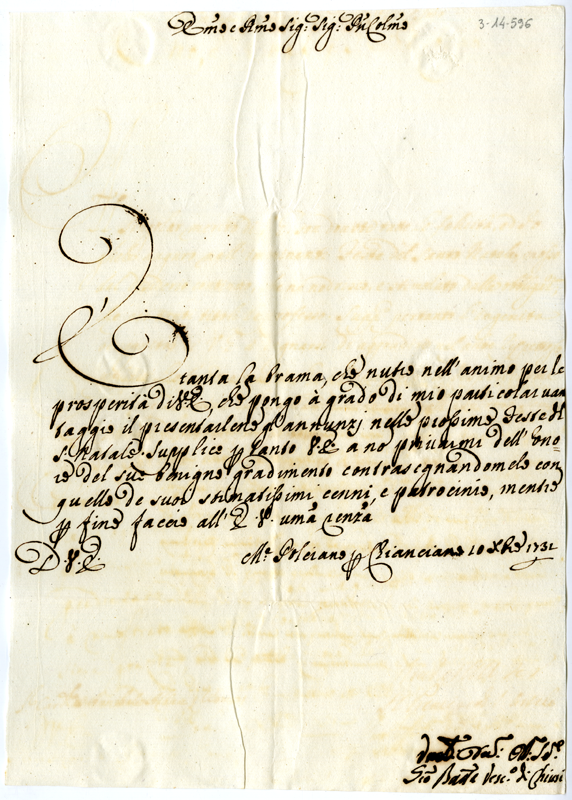 Em̃e e Rm̃e Sig: Sig: Pñ Colm̃o
3-14-596
È tanta la brama, che nutro nell'animo per le
prosperità di V.E., che pongo à grado di mio particolar van
taggio il presentarlene gl'annunzj nelle prossime Feste di
S. Natale. Supplico ꝑ tanto V.E. a no privarmi dell'Ono=
re del suo benigno gradimento contrasegnandomelo con
quello de suoi stimatissimi cenni, e patrocinio, mentre
ꝑ fine faccio all'E.V. umã renzã
D. V. E.
Mte Polciano ꝑ Chianciano 10 Xbre 1731
Gio Battã Vesc.o di Chiusi